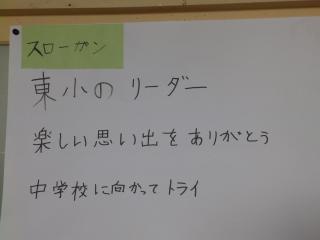 スローガン
東小のリーダー
楽しい思い出をありがとう
中学校に向かってトライ